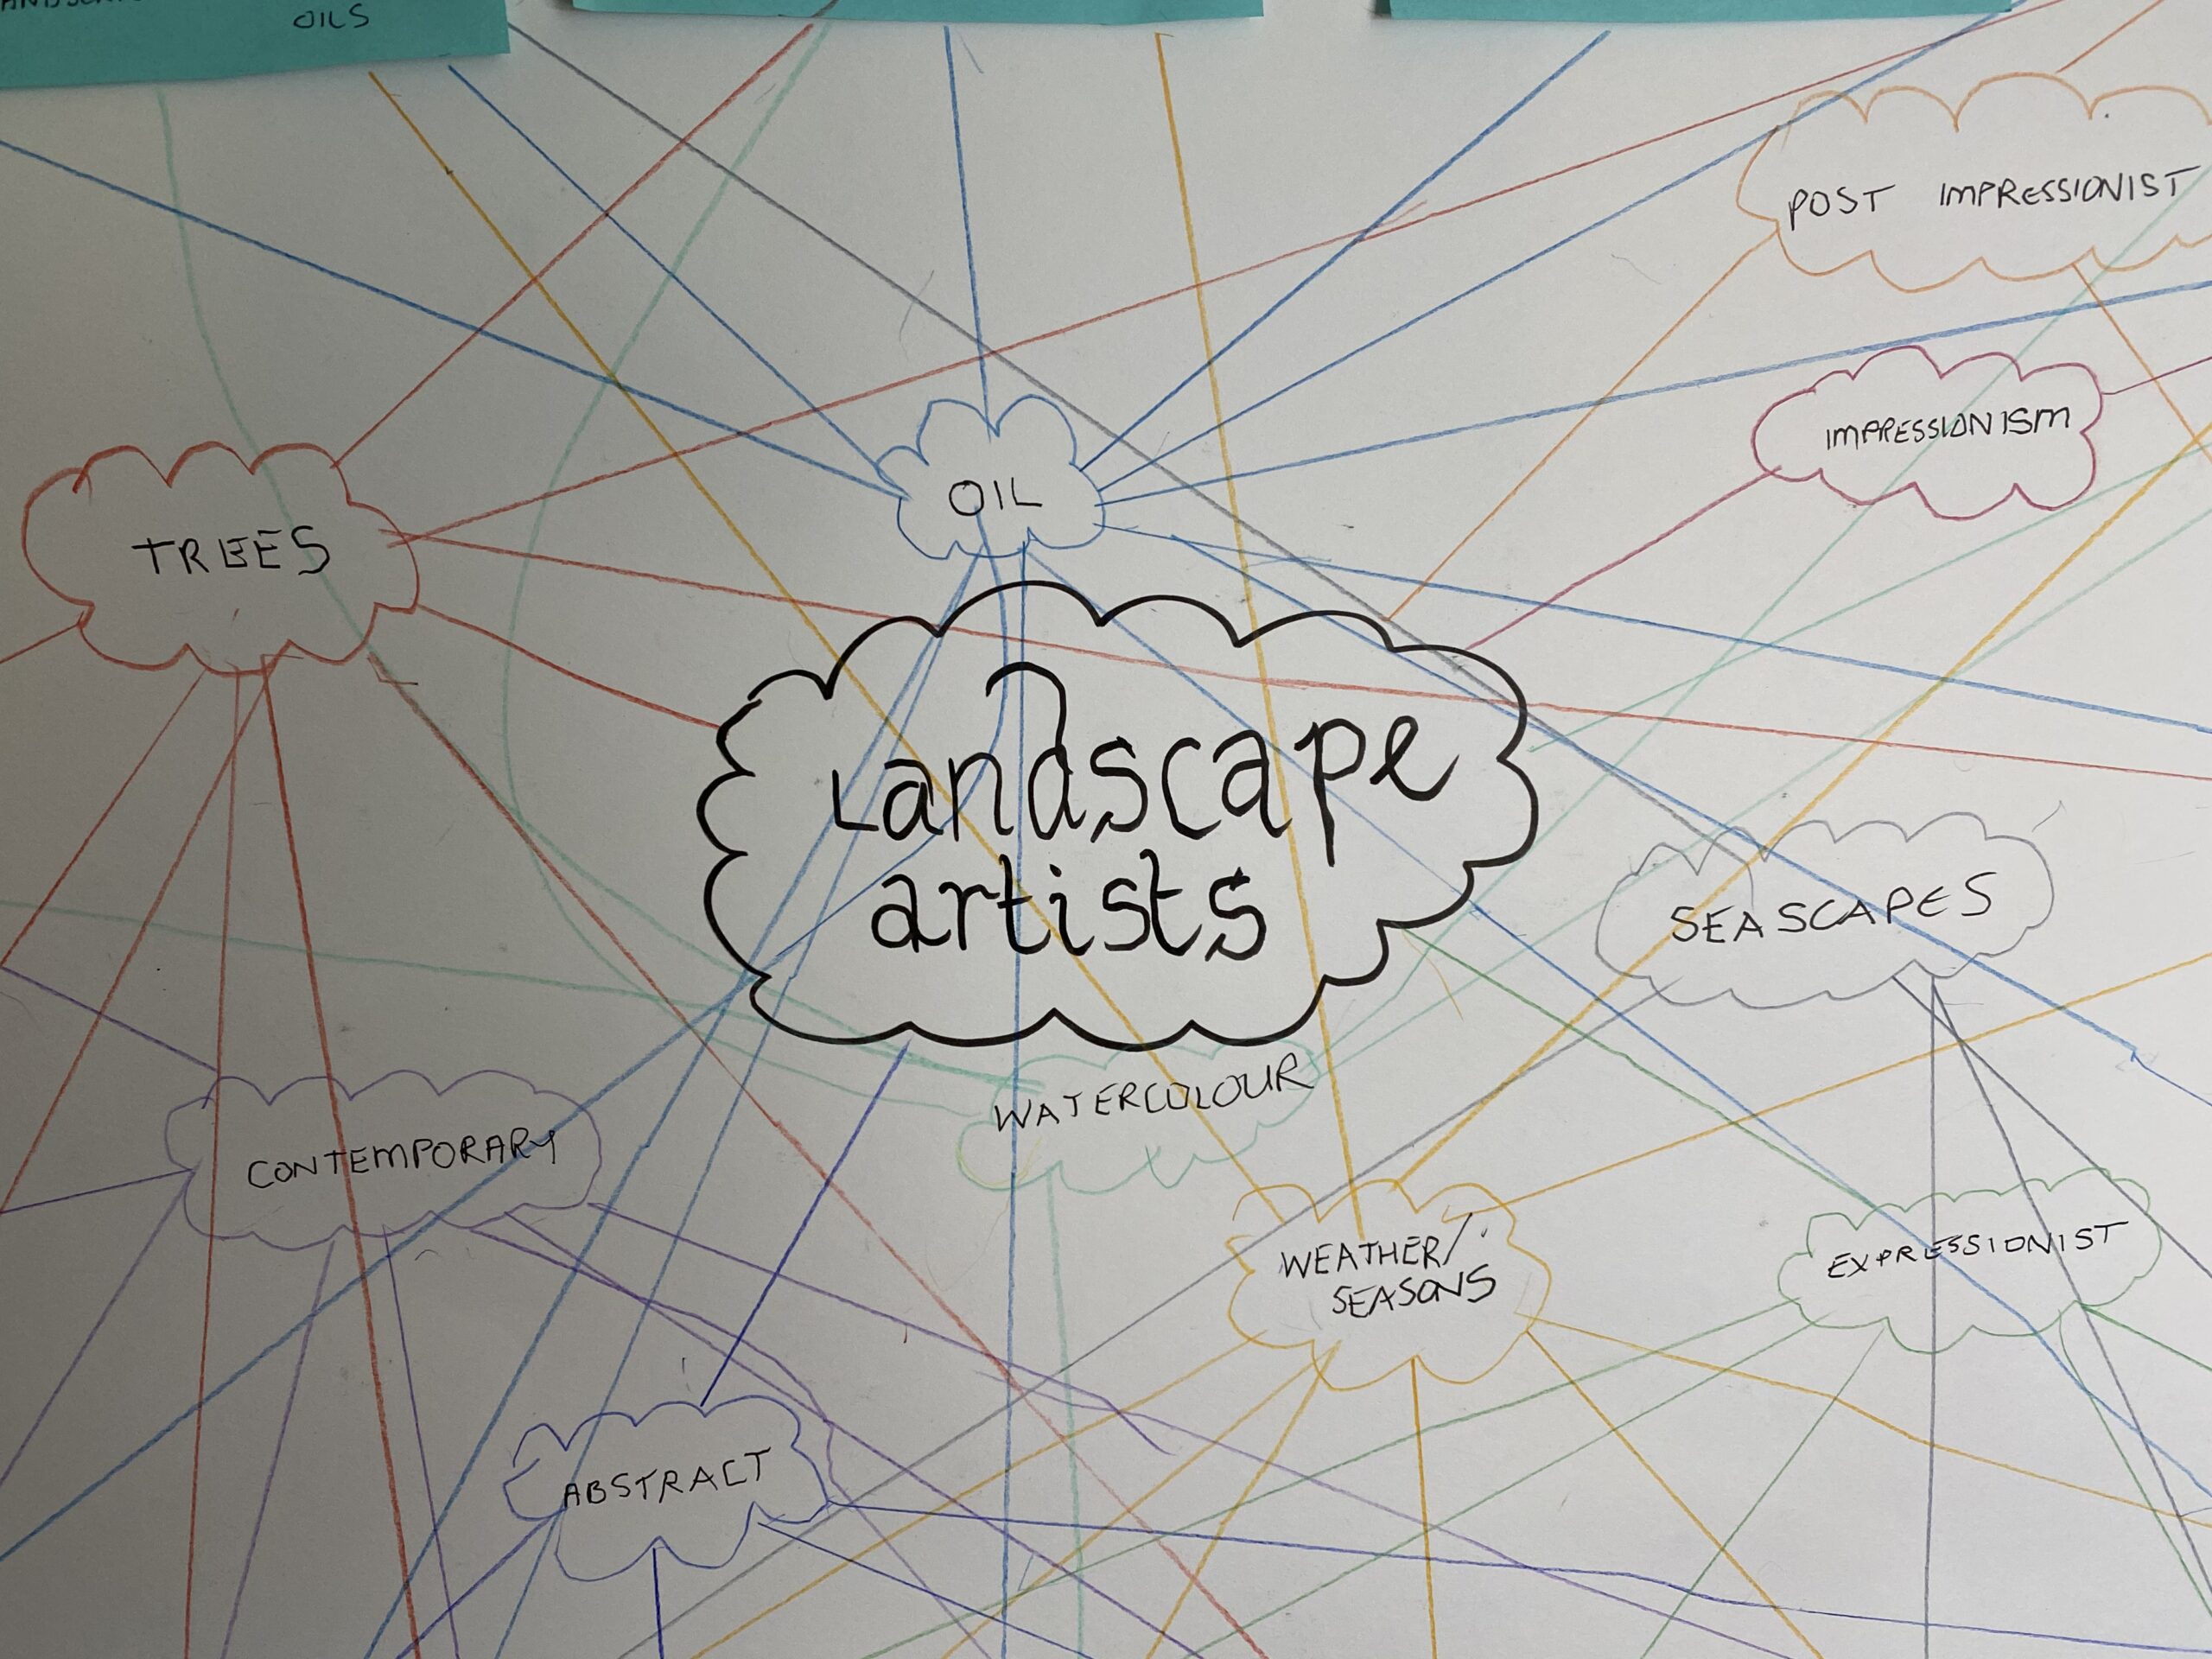 OILS
POST IMPRESSIONIST
IMPRESSIONISM
OIL
TREES
Landscape
artists
SEASCAPES
WATERCOLOUR
CONTEMPORARY
WEATHER/
SEASONS
EXPRESSIONIST
ABSTRACT